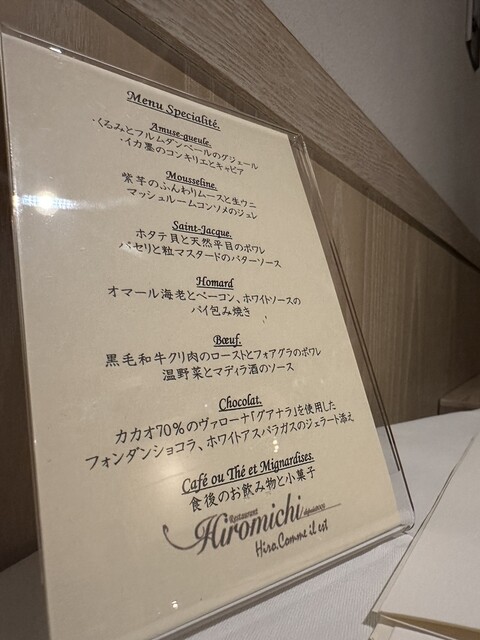 Menu Specialité.
Amuse-gueule.
・くるみとフルムダンベールのグジェール
・イカ墨のコンキリエとキャビア
Mousseline.
紫芋のふんわりムースと生ウニ
マッシュルームコンソメのジュレ
Saint-Jacque.
ホタテ貝と天然平目のポワレ
パセリと粒マスタードのバターソース
Homard
オマール海老とベーコン、ホワイトソースの
パイ包み焼き
Bœuf.
黒毛和牛クリ肉のローストとフォアグラのポワレ
温野菜とマディラ酒のソース
Chocolat.
カカオ70%のヴァローナ「グアナラ」を使用した
フォンダンショコラ、ホワイトアスパラガスのジェラート添え
Café ou Thé et Mignardises.
食後のお飲み物と小菓子
Restaurant
Hiromichi
Hiro.Comme il est